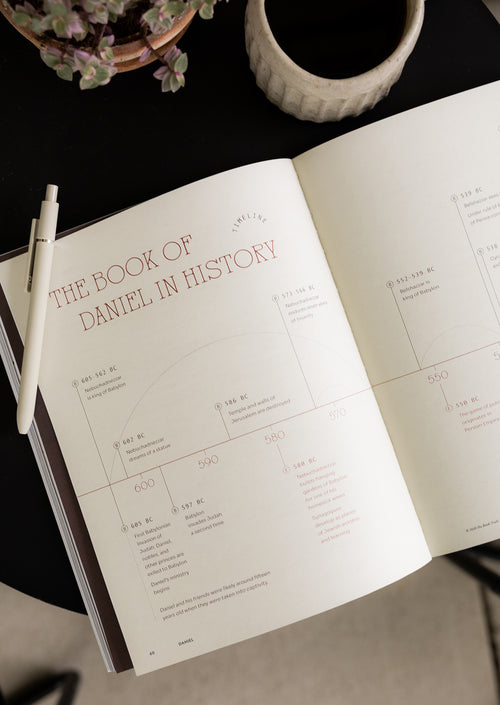 TIMELINE
THE BOOK OF
DANIEL IN HISTORY
605-562 BC
Nebuchadnezzar
is king of Babylon
602 BC
Nebuchadnezzar
dreams of a statue
586 BC
Temple and walls of
Jerusalem are destroyed
573-566 BC
Nebuchadnezzar
endures
of insanity
600
590
580
570
605 BC
First Babylonian
invasion of
Judah; Daniel,
nobles, and
other princes are
exiled to Babylon
Daniel's ministry
begins
597 BC
Babylon
invades Judah
a second time
580 BC
Nebuchadnezzar
builds hanging
gardens of Babylon
for one of his
homesick wives
Synagogues
develop as places
of Jewish worship
and learning
Daniel and his friends were likely around fifteen
years old when they were taken into captivity.
60
DANIEL
552-539 BC
Belshazzar is
king of Babylon
539 BC
Belshazzar
Under rule of
550
550 BC
The game of polo
originates in
Persian Empire